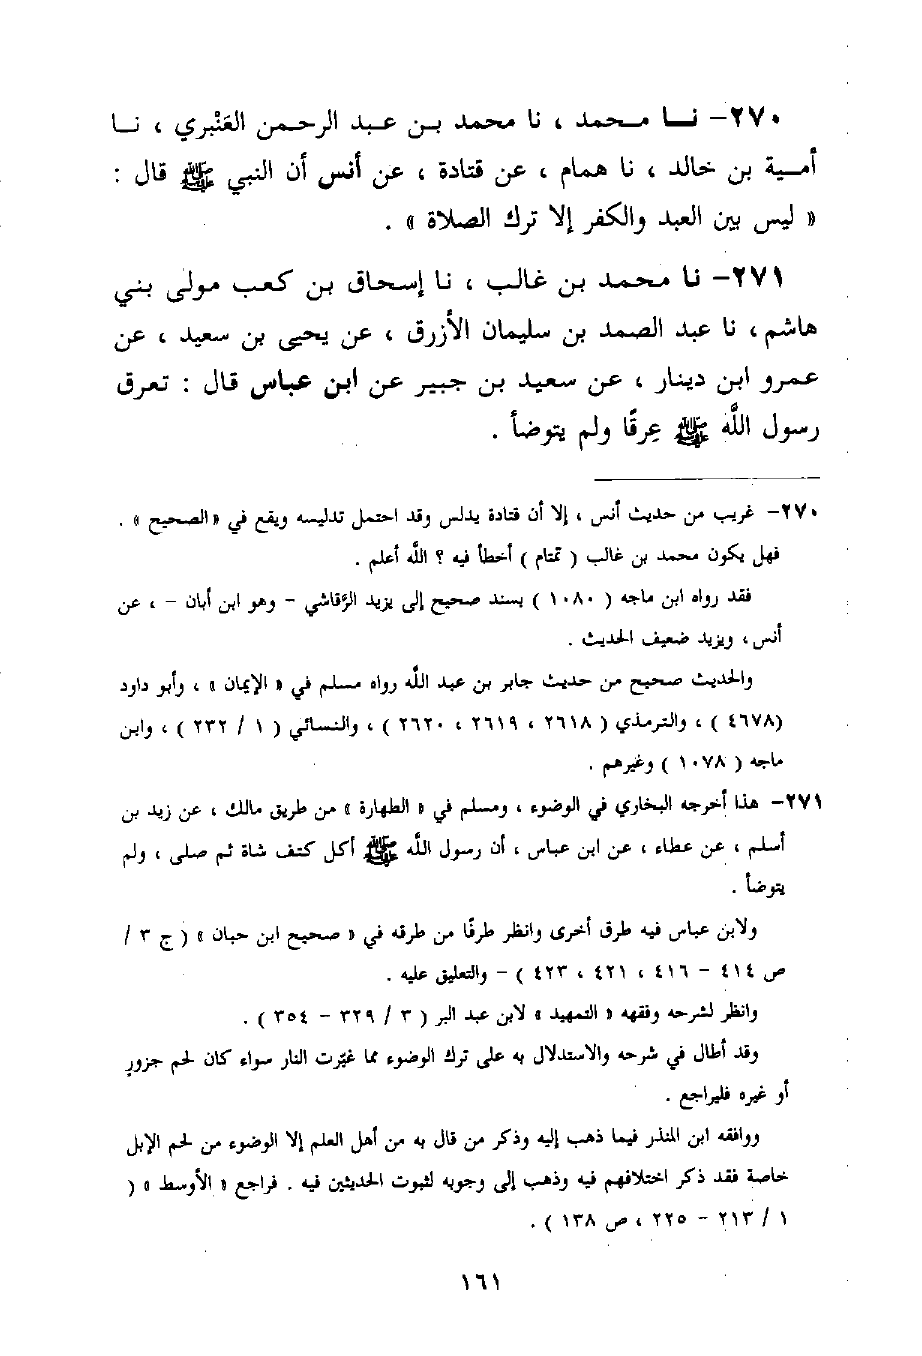 ٢٧٠- نــا محمد ، نا محمد بن عبد الرحمن العَنْبري ، نــا
أمــية بن خالد ، نا همام ، عن قتادة ، عن أنس أن النبي ﷺ قال :
« ليس بين العبد والكفر إلا ترك الصلاة » .
٢٧١- نا محمد بن غالب ، نا إسحاق بن كعب مولى بني
هاشم ، نا عبد الصمد بن سليمان الأزرق ، عن يحيى بن سعيد ، عن
عمرو ابن دينار ، عن سعيد بن جبير عن ابن عباس قال : تعرق
رسول اللَّه ﷺ عِرقًا ولم يتوضأ .
٢٧٠- غريب من حديث أنس ، إلا أن قتادة يدلس وقد احتمل تدليسه ويقع في «الصحيح» .
فهل يكون محمد بن غالب ( تمتام ) أخطأ فيه ؟ اللَّه أعلم .
فقد رواه ابن ماجه ( ١٠٨٠ ) بسند صحيح إلى يزيد الرَّقاشي - وهو ابن أبان - ، عن
أنس ، ويزيد ضعيف الحديث .
والحديث صحيح من حديث جابر بن عبد اللَّه رواه مسلم في « الإيمان » ، وأبو داود
(٤٦٧٨ ) ، والترمذي ( ٢٦١٨ ، ٢٦١٩ ، ٢٦٢٠ ) ، والنسائي ( ١ / ٢٣٢ ) ، وابن
ماجه ( ١٠٧٨ ) وغيرهم .
٢٧١- هذا أخرجه البخاري في الوضوء ، ومسلم في « الطهارة » من طريق مالك ، عن زيد بن
أسلم ، عن عطاء ، عن ابن عباس ، أن رسول اللَّه ﷺ أكل كتف شاة ثم صلى ، ولم
يتوضأ .
ولابن عباس فيه طرق أخرى وانظر طرفًا من طرقه في « صحيح ابن حبان » ( ج ٣ /
ص ٤١٤ - ٤١٦ ، ٤٢١ ، ٤٢٣ ) - والتعليق عليه .
وانظر لشرحه وفقهه « التمهيد » لابن عبد البر ( ٣ / ٣٢٩ - ٣٥٤ ) .
وقد أطال في شرحه والاستدلال به على ترك الوضوء مما غيَّرت النار سواء كان لحم جزورٍ
أو غيره فليراجع .
ووافقه ابن المنذر فيما ذهب إليه وذكر من قال به من أهل العلم إلا الوضوء من لحم الإبل
خاصة فقد ذكر اختلافهم فيه وذهب إلى وجوبه لثبوت الحديثين فيه . فراجع « الأوسط » (
١ / ٢١٣ - ٢٢٥ ، ص ١٣٨ ) .
١٦١